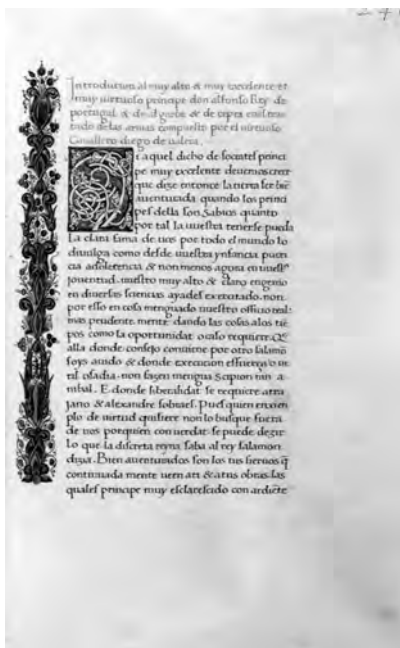 Introduction al muy alto & muy excelente et
muy uirtuoso principe don alfonso Rey de
portogal & de algarbe & de cepta en el trac
tado de las armas compuesto por el uirtuoso
Cauallero diego de ualera.
Si a quel dicho de socrates princi
pe muy excelente deuemos creer
que dize entonce la tierra ser bié
auenturada quando los princi
pes della son sabios quanto
por tal la uuestra tenerse pueda
La clara fama de uos por todo el mundo lo
diuulga como desde uuestra ynfancia pueri
cia adolecencia & non menos agora en uuestª
jouentud. uuestro muy alto & claro engenio
en diuersas sciencias ayades exercitado. non
por esso en cosa menguado uuestro officio real.
mas prudente mente dando las cosas a los tié
pos como la oportunidat o caso requiere. Q̃
alla donde consejo conuiene por otro salamõ
soys auido & donde execucion esfuerço o ui
ril osadia. non fazen mengua scipion nin a
nibal. E donde liberalidat se requiere atra
jano & alexandre sobraes. Pues quien enxem
plo de uirtud quisiere non lo busque fuera
de uos por quien con uerdat se puede dezir
lo que la discreta reyna saba al rey salamon
dixa. Bien auenturados son los tus sieruos q̃
continuada mente ueen a ti & a tus obras. las
quales principe muy esclarescido con ardiéte